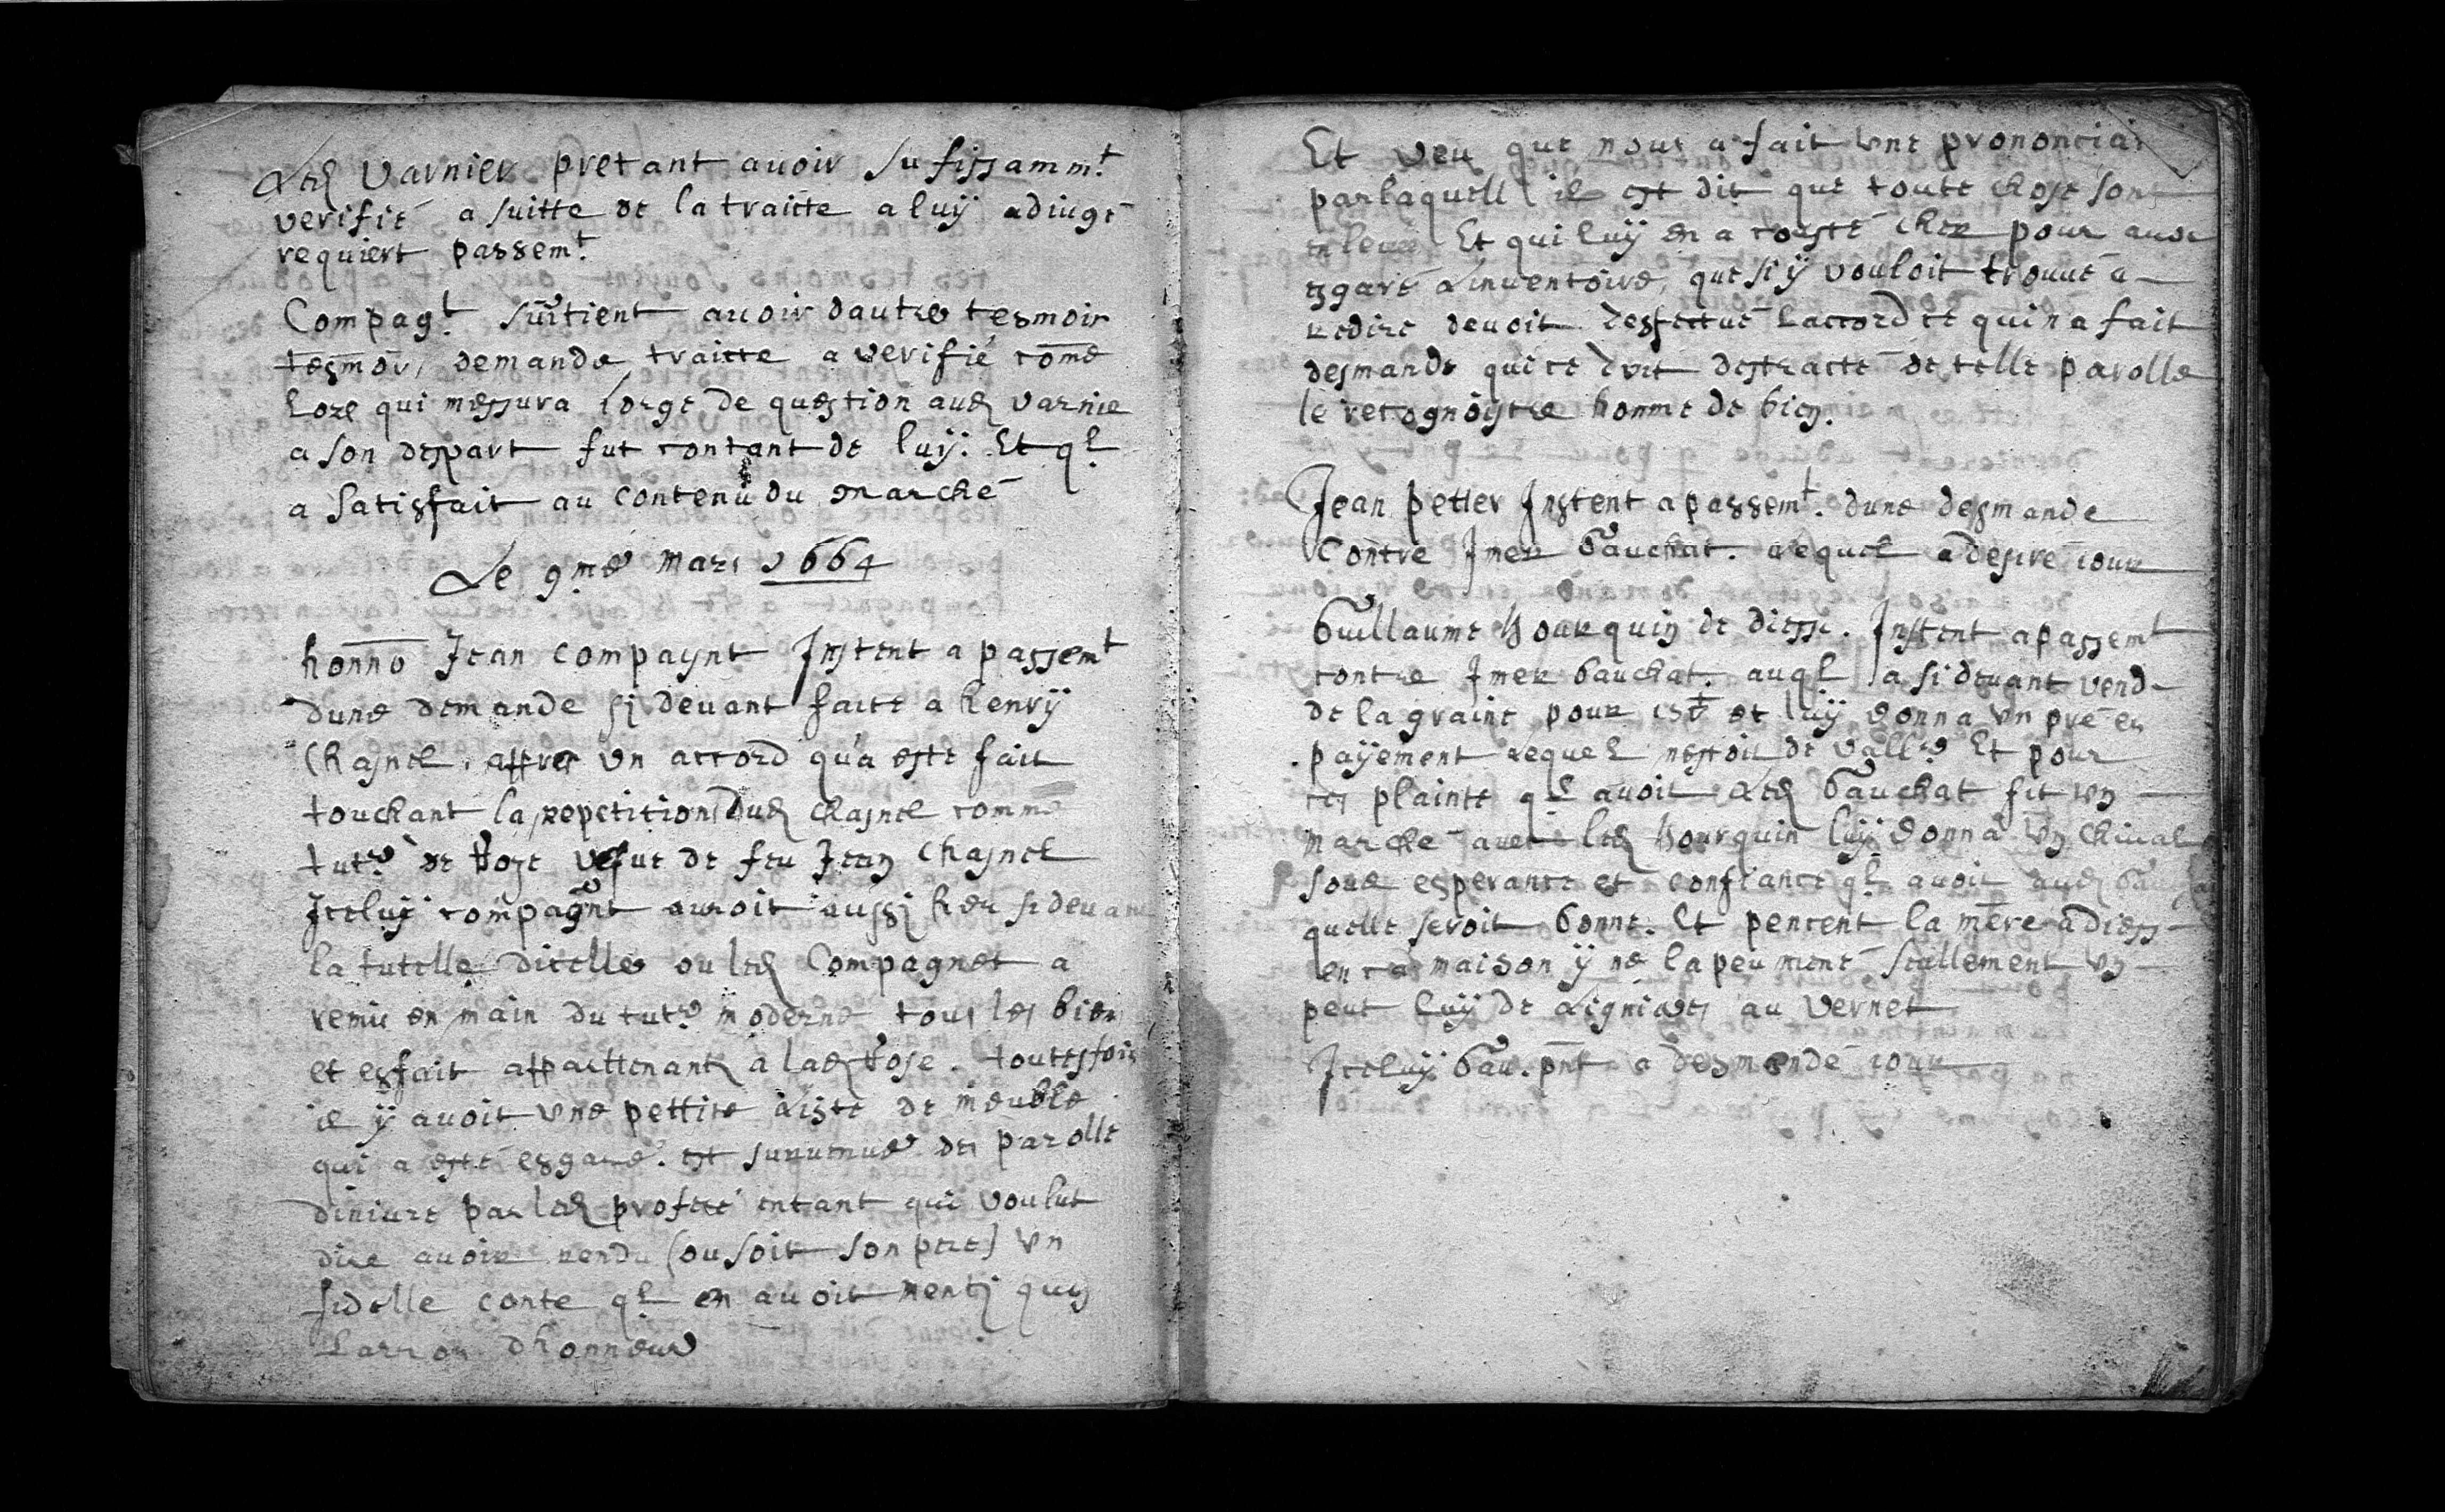 Led Varnier pretant auoir sufissamm.t
verifié a suitte de la traitte a luÿ adiugé
requiert passem.t
Compag.t sūtient auoir dautre tesmoin
tesmoi, demande traitte a verifié come
Loze qui messura lorge de question aud varnie
a son despart fut contant de luÿ. Et ql
a satisfait au contenu du marché
Le 9.me mars 1664
honno Jean Compaynt Instent a passemt
dune demande si deuant faite a henrÿ
Chasnel. affrer vn accord qu'a esté fait
touchant la repetition dud Chasnel comme
tut.r de vefue de feu Jean Chasnel
Iceluÿ compagnt auroit aussi heu si deuant
la tutelle dicelle ou led Compagnet a
remie en main du tut.r moderne tous les bien
et esfait appartenant a lad . toutesfois
il ÿ auoit vne pettite liste de meuble
qui a esté esgaré. est suruenue des parolle
diniure par led proferé entant qui voulut
dire auoir rendu (ou soit son pere) vn
fidelle conte ql en auoit menti qun
Larron dhonneur
Et veu que nous a fait vne prononcia
par laquelle il est dit que toute chose sont
Et qui luÿ en a cousté cher pour auoi
esgaré Linuentoire, que si ÿ vouloit trouué a
redire deuoit laccord ce qui n a fait
desmande qui ce doit destracté de telle parolle
le recognoistre homme de bien.
Jean petter Instent a passem.t dune desmande
Contre Imer Gauchat. Lequel a desiré iour
Guillaume Bourquin de diesse. Instent a passemt
contre Imer Gauchat. auql a si deuant vend
de la graine pour et luÿ donna vn pré en
payement Lequel nestoit de vall.r Et pour
ces plainte ql auoit Led Gauchat fit vn
marché auec led Bourquin luÿ donna vn cheual
soue esperance et confiance ql auoit aud Gauchat
quelle seroit bonne. Et pencent la mere a diess
en ca maison ÿ ne la peu mené seullement vn
peut luÿ de Ligniere au Vernet
Iceluÿ Gau. pnt a desmendé iour